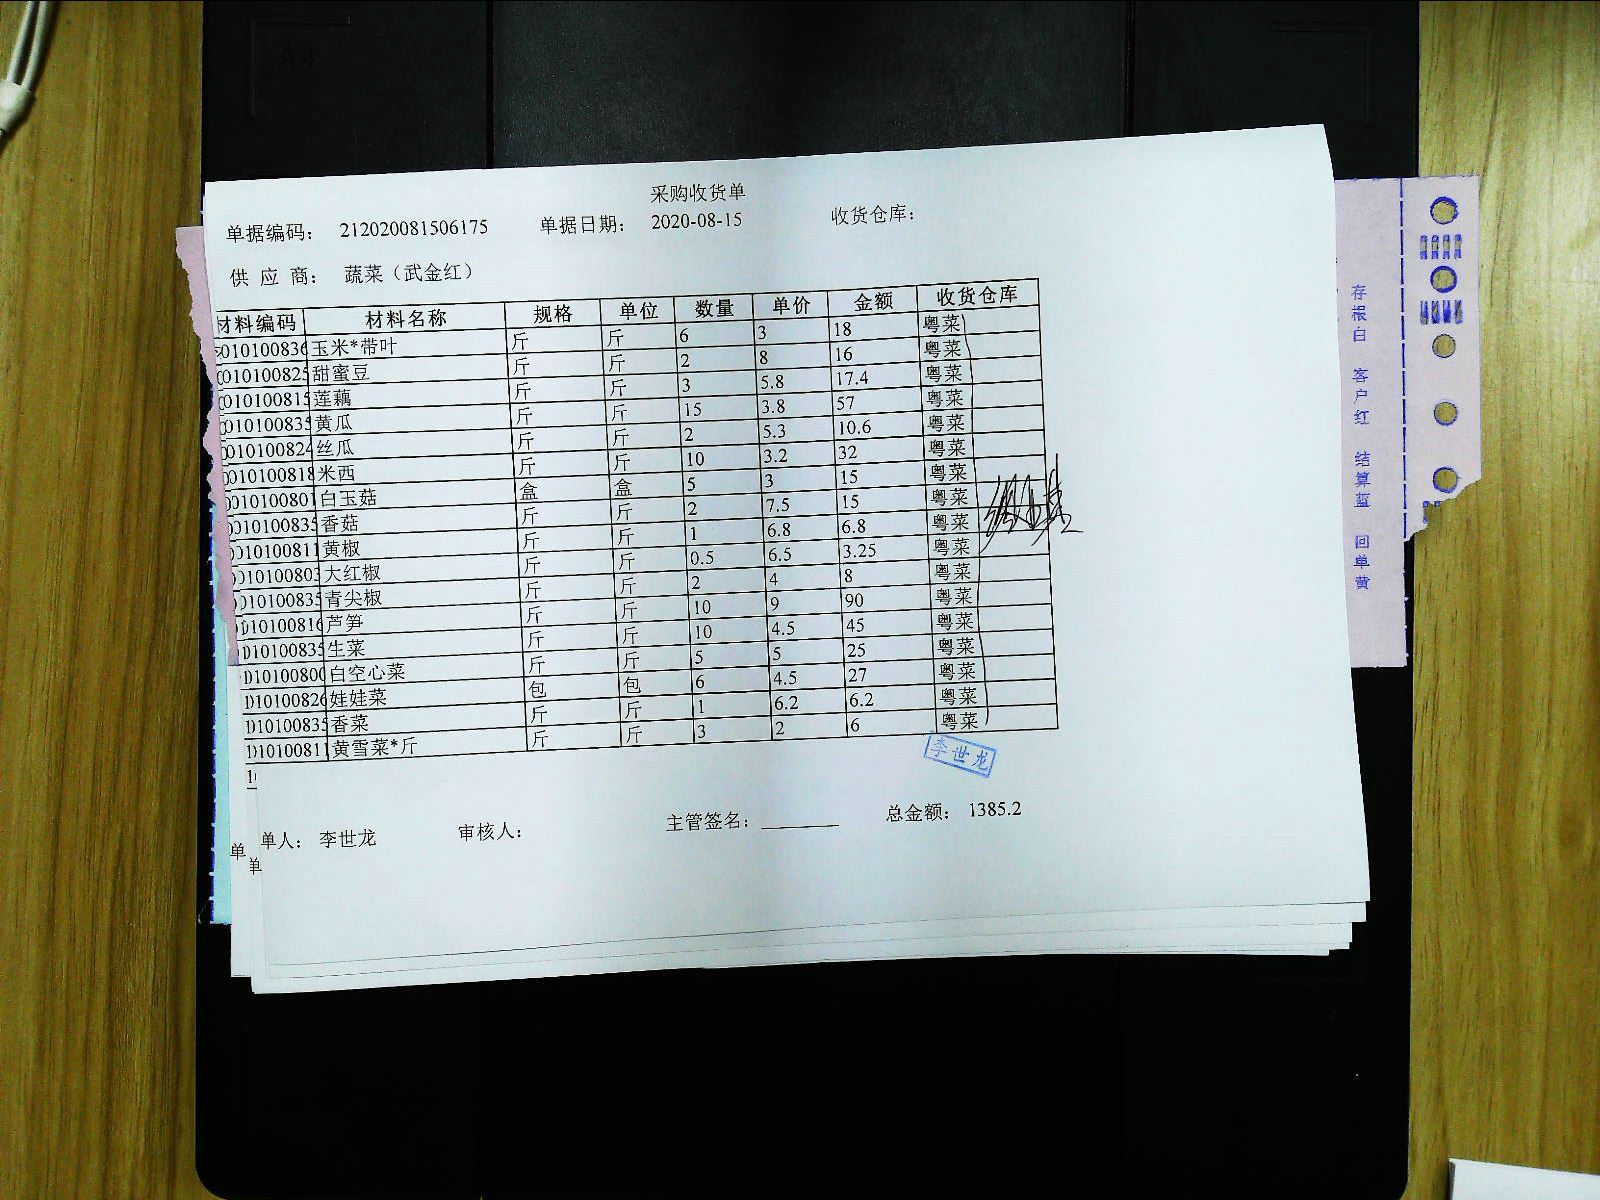 采购收货单
单据编码： 212020081506175 单据日期： 2020-08-15 收货仓库：
供 应 商： 蔬菜（武金红）
材料编码 材料名称 规格 单位 数量 单价 金额 收货仓库
010100836 玉米*带叶 斤 斤 6 3 18 粤菜
010100825 甜蜜豆 斤 斤 2 8 16 粤菜
010100815 莲藕 斤 斤 3 5.8 17.4 粤菜
010100835 黄瓜 斤 斤 15 3.8 57 粤菜
010100824 丝瓜 斤 斤 2 5.3 10.6 粤菜
010100818 米西 斤 斤 10 3.2 32 粤菜
010100801 白玉菇 盒 盒 5 3 15 粤菜
010100835 香菇 斤 斤 2 7.5 15 粤菜
010100811 黄椒 斤 斤 1 6.8 6.8 粤菜
010100803 大红椒 斤 斤 0.5 6.5 3.25 粤菜
010100835 青尖椒 斤 斤 2 4 8 粤菜
010100816 芦笋 斤 斤 10 9 90 粤菜
010100835 生菜 斤 斤 10 4.5 45 粤菜
010100800 白空心菜 斤 斤 5 5 25 粤菜
010100826 娃娃菜 包 包 6 4.5 27 粤菜
010100835 香菜 斤 斤 1 6.2 6.2 粤菜
010100811 黄雪菜*斤 斤 斤 3 2 6 粤菜
李世龙
单人： 李世龙 审核人： 主管签名： 总金额： 1385.2
单
单
存根白 客户红 结算蓝 回单黄